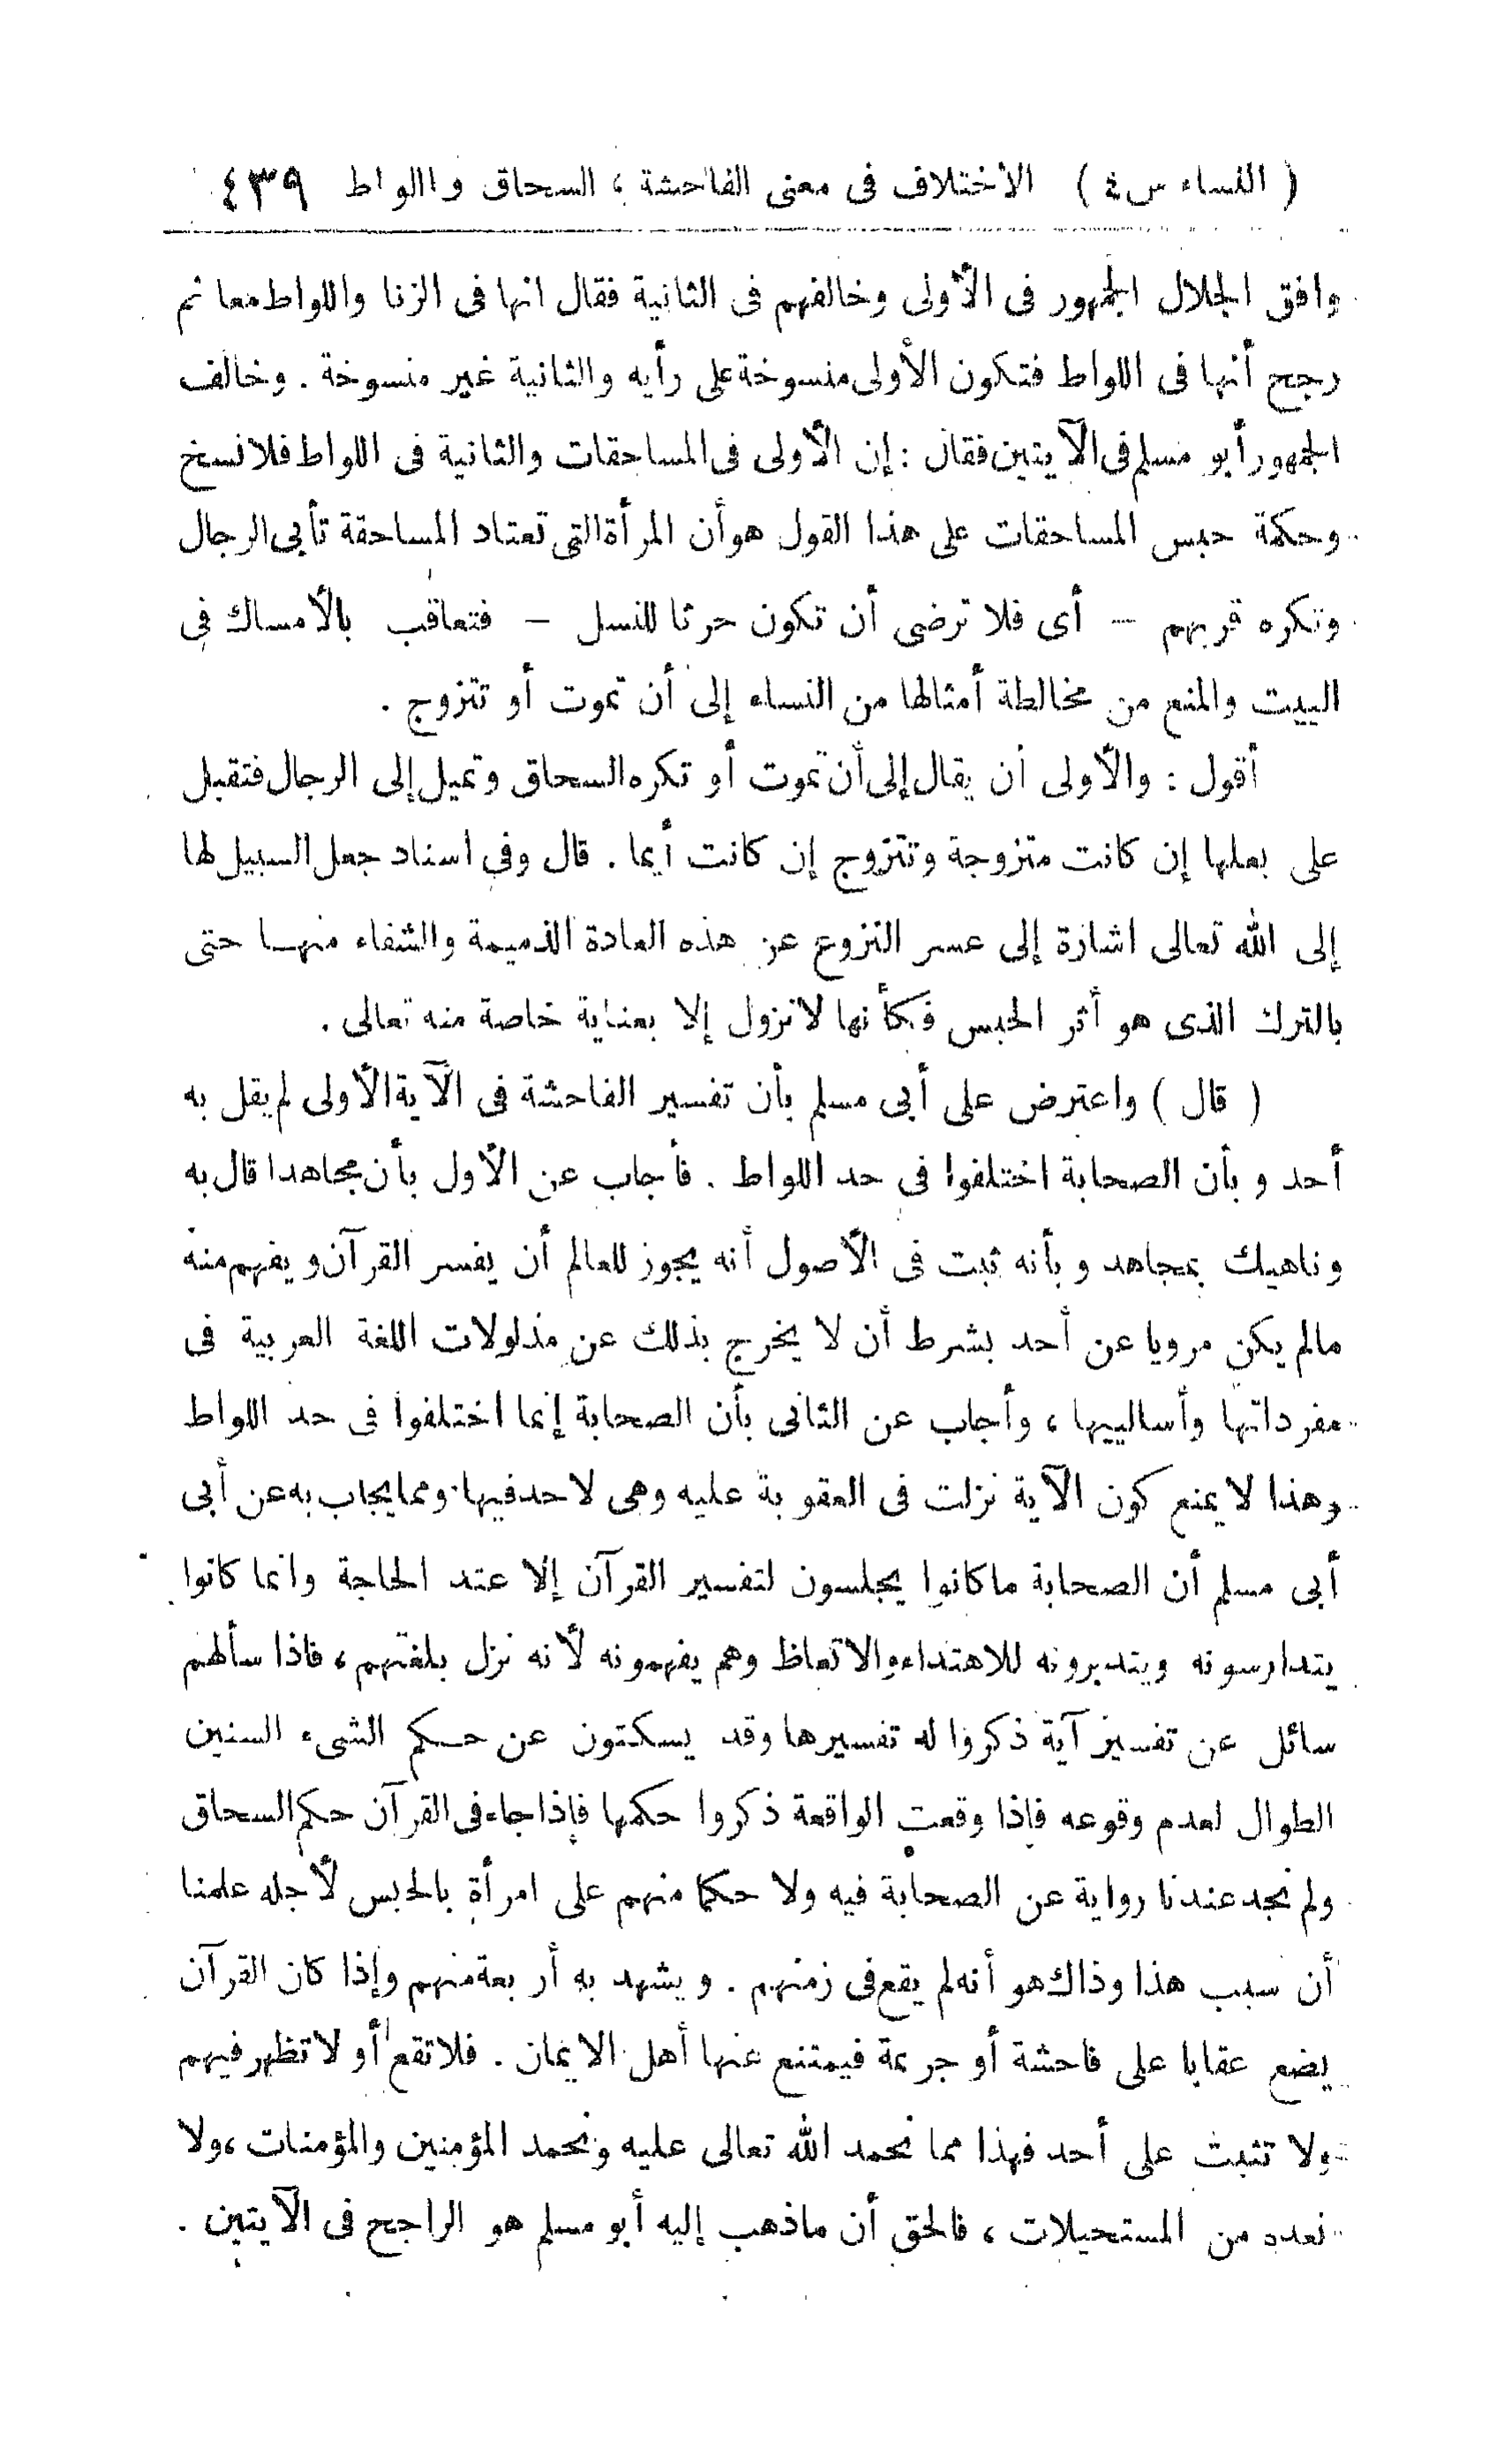 ( النساء س ٤ ) الاختلاف فى معنى الفاحشة ، السحاق واللواط ٤٣٩
وافق الجلال الجمهور فى الأولى وخالفهم فى الثانية فقال انها فى الزنا واللواط معا ثم
رجح أنها فى اللواط فتكون الأولى منسوخة على رأيه والثانية غير منسوخة . وخالف
الجمهور أبو مسلم فى الآيتين فقال : إن الأولى فى المساحقات والثانية فى اللواط فلا نسخ
وحكمة حبس المساحقات على هذا القول هو أن المرأة التى تعتاد المساحقة تأبى الرجال
وتكره قربهم – أى فلا ترضى أن تكون حرثا للنسل – فتعاقب بالأمساك فى
البيت والمنع من مخالطة أمثالها من النساء إلى أن تموت أو تتزوج .
أقول : والأولى أن يقال إلى أن تموت أو تكره السحاق وتميل إلى الرجال فتقبل
على بعلها إن كانت متزوجة وتتزوج إن كانت أيما . قال وفى اسناد جعل السبيل لها
إلى الله تعالى اشارة إلى عسر النزوع عن هذه العادة الذميمة والشفاء منها حتى
بالترك الذى هو أثر الحبس فكأنها لا تزول إلا بعناية خاصة منه تعالى .
( قال ) واعترض على أبى مسلم بأن تفسير الفاحشة فى الآية الأولى لم يقل به
أحد و بأن الصحابة اختلفوا فى حد اللواط . فأجاب عن الأول بأن مجاهدا قال به
وناهيك بمجاهد و بأنه ثبت فى الأصول أنه يجوز للعالم أن يفسر القرآن و يفهم منه
مالم يكن مرويا عن أحد بشرط أن لا يخرج بذلك عن مدلولات اللغة العربية فى
مفرداتها وأساليبها ، وأجاب عن الثانى بأن الصحابة إنما اختلفوا فى حد اللواط
وهذا لا يمنع كون الآية نزلت فى العقوبة عليه وهى لا حد فيها . ومما يجاب به عن أبى
أبى مسلم أن الصحابة ما كانوا يجلسون لتفسير القرآن إلا عند الحاجة وانما كانوا
يتدارسونه ويتدبرونه للاهتداء والاتعاظ وهم يفهمونه لأنه نزل بلغتهم ، فاذا سألهم
سائل عن تفسير آية ذكروا له تفسيرها وقد يسكتون عن حكم الشىء السنين
الطوال لعدم وقوعه فاذا وقعت الواقعة ذكروا حكمها فإذا جاء فى القرآن حكم السحاق
ولم نجد عندنا رواية عن الصحابة فيه ولا حكما منهم على امرأة بالحبس لأجله علمنا
أن سبب هذا وذاك هو أنه لم يقع فى زمنهم . و يشهد به أربعة منهم وإذا كان القرآن
يضع عقابا على فاحشة أو جريمة فيمتنع عنها أهل الايمان . فلا تقع أو لا تظهر فيهم
ولا تثبت على أحد فهذا مما نحمد الله تعالى عليه ونحمد المؤمنين والمؤمنات ، ولا
نعده من المستحيلات ، فالحق أن ماذهب إليه أبو مسلم هو الراجح فى الآيتين .